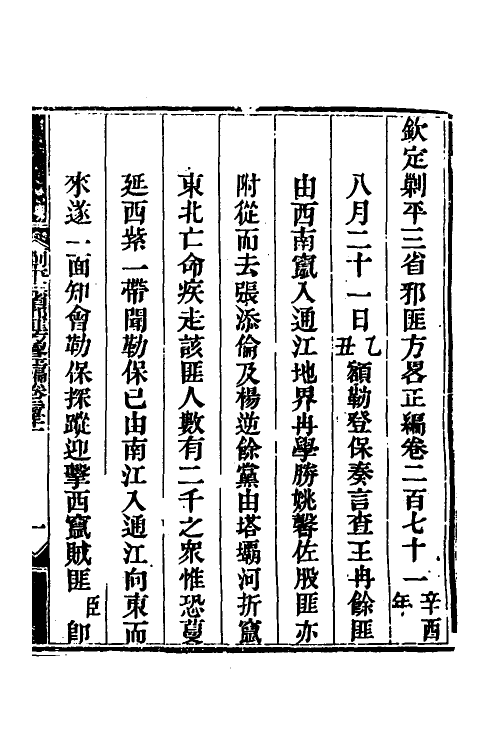 欽定剿平三省邪匪方畧正編卷二百七十一辛酉年
八月二十一日乙丑額勒登保奏言查王冉餘匪
由西南竄入通江地界冉學勝姚馨佐股匪亦
附從而去張添倫及楊逆餘黨由塔壩河折竄
東北亡命疾走該匪人數有二千之衆惟恐蔓
延西紫一帶聞勒保已由南江入通江向東而
來遂一面知會勒保探蹤迎擊西竄賊匪臣即